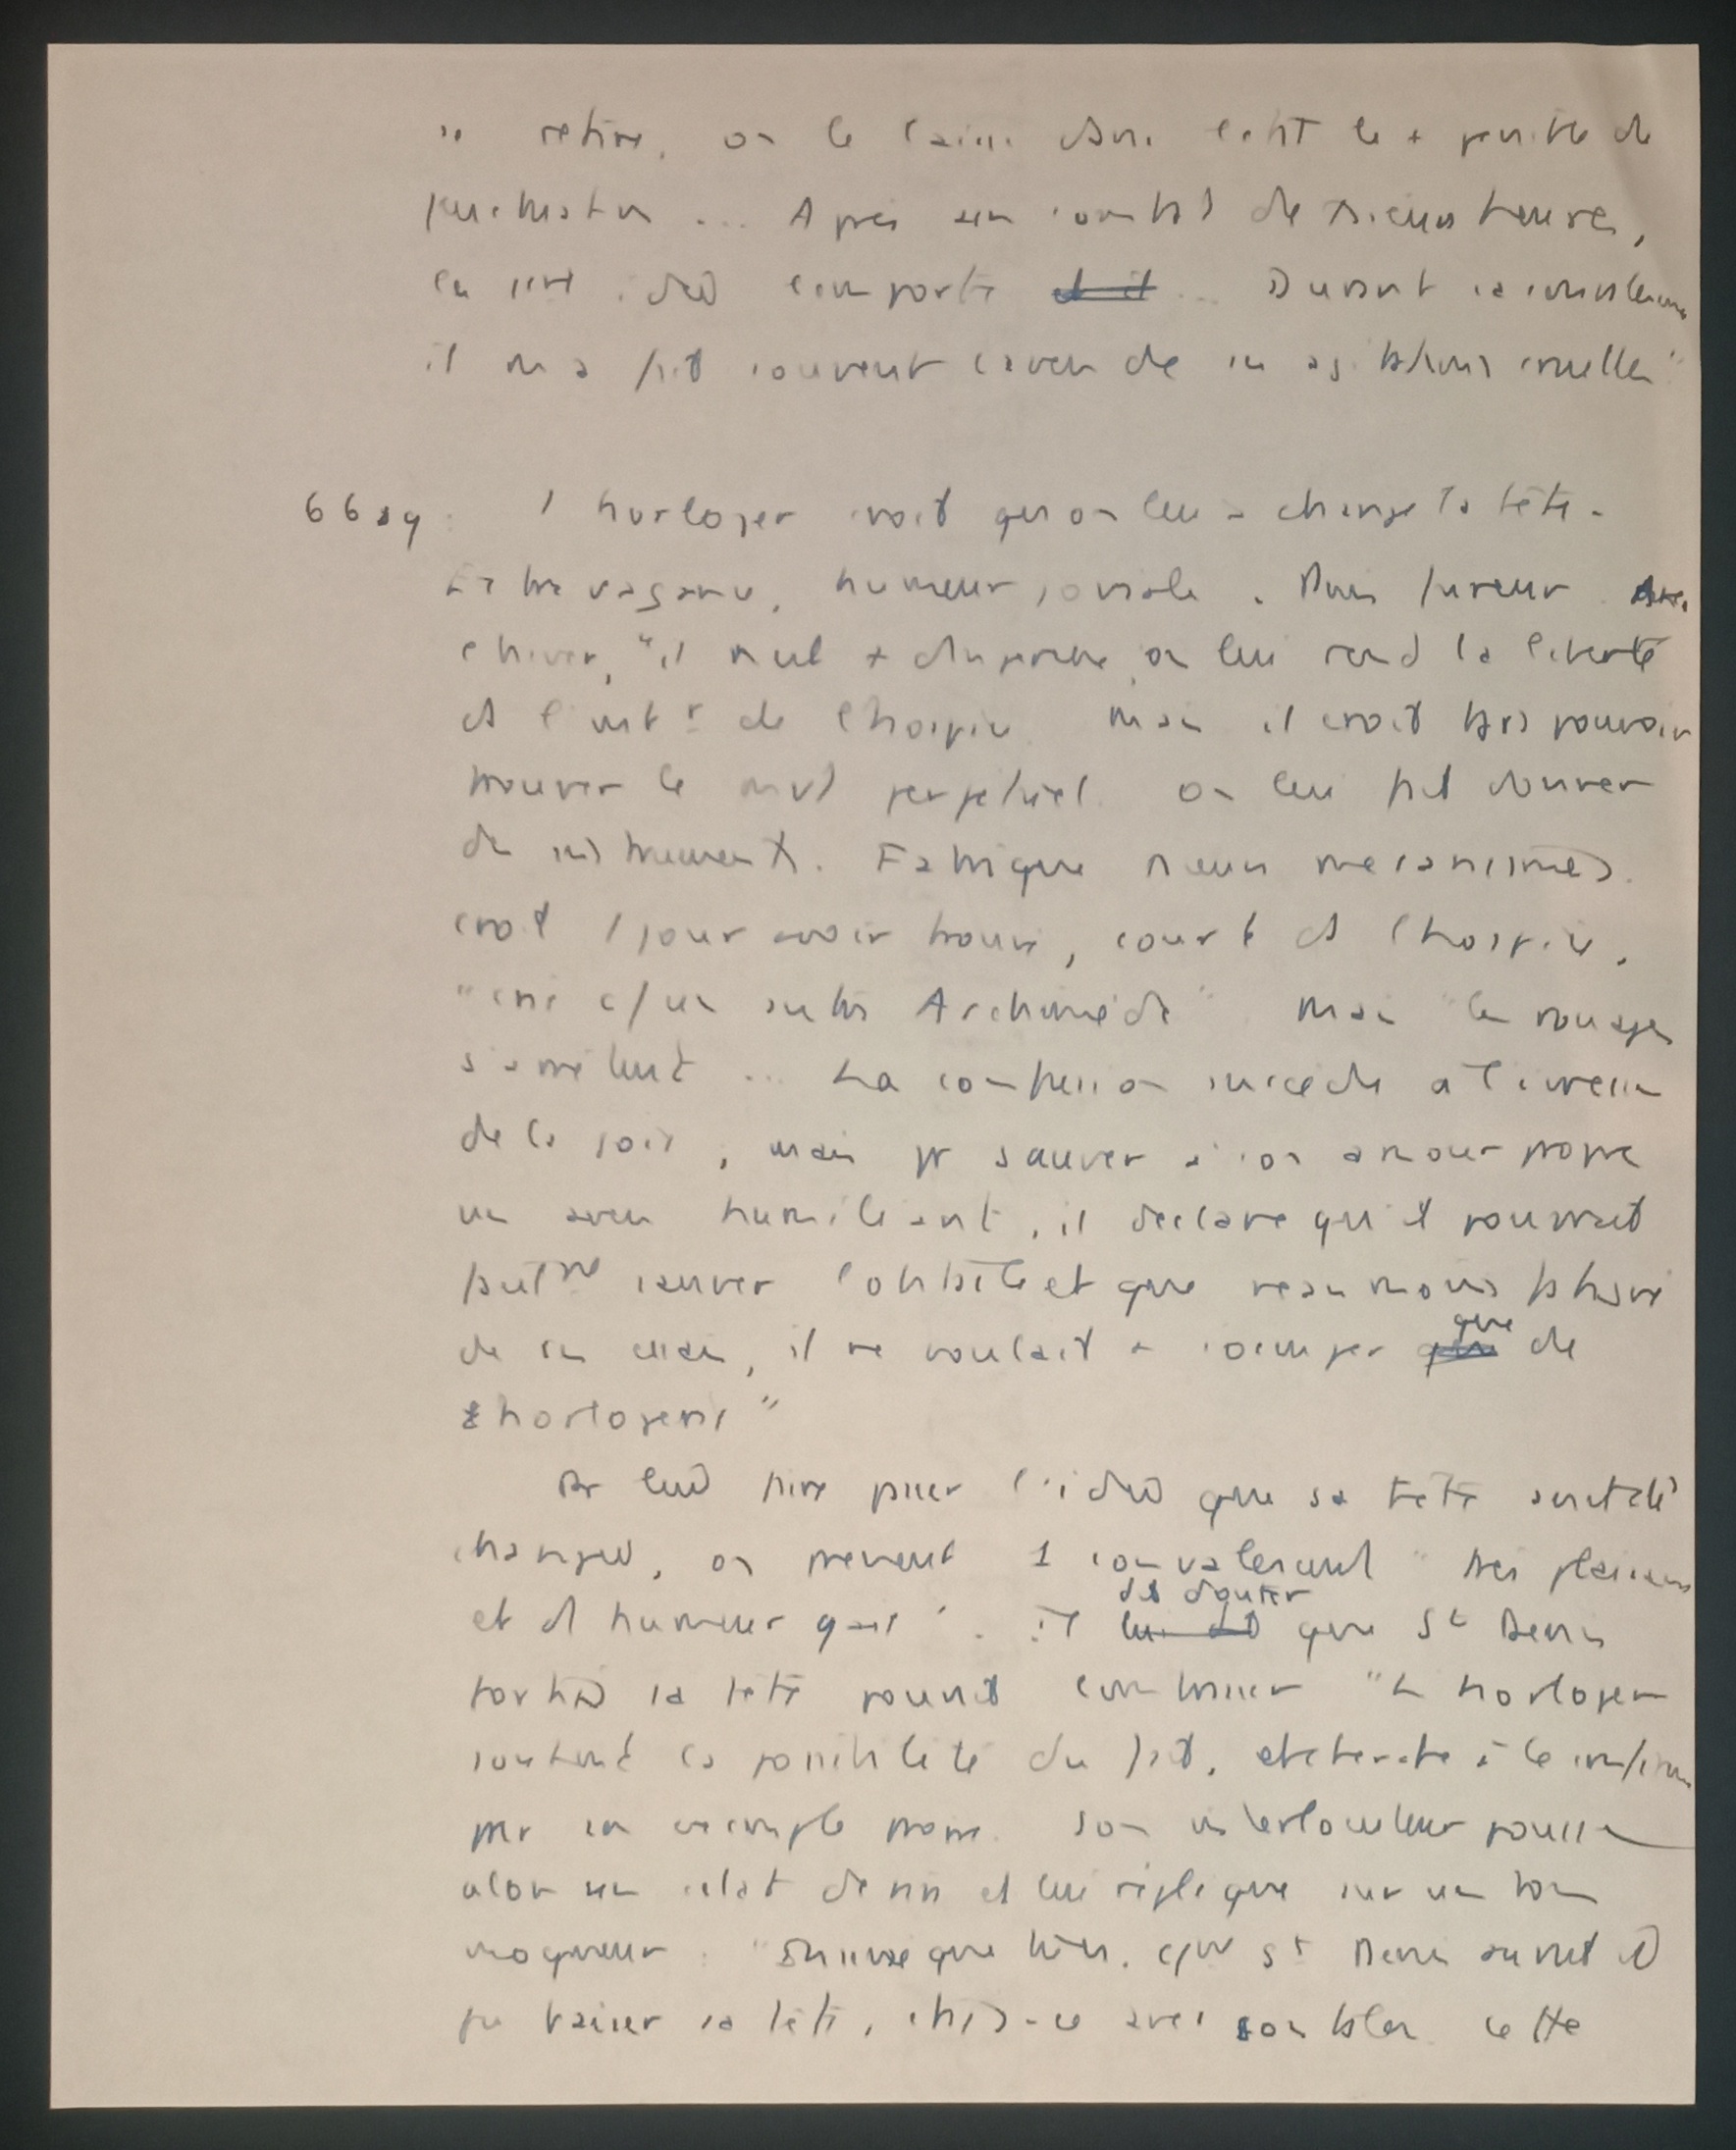 se retire, on le laisse dans l'état le + pénible de
fluctuation ... Après un combat de plusieurs heures,
la 1ère idée l'emporte et il ... Durant sa convalescence
il m'a fait souvent l'aveu de ses agitations cruelles"
66 sq : 1 horloger croit qu'on lui a changé la tête.
Extravagance, humeur joviale. Puis fureur.
l'hiver, "il n'est + dangereux, on lui rend la liberté
ds l'int r de l'hospice. Mais il croit tjrs pouvoir
trouver le mvt perpétuel. on lui fait donner
des instruments. Fabrique plusieurs mécanismes.
croit 1 jour avoir trouvé, court ds l'hospice,
"crie c/ un autre Archimède". Mais "les rouages
s'arrêtent ... La confusion succède à l'ivresse
de la joie, mais pr sauver à son amour propre
un aveu humiliant, il déclare qu'il pourrait
facilmt lever l'obstacle et que néanmoins fatigué
de ces essais, il ne voulait + s'occuper que de
l'horlogerie"
Pr lui faire passer l'idée que sa tête aurait été
changée, on prévient 1 convalescent "très plaisant
et d'humeur gaie". Il lui dit dt douter que St Denis
portant sa tête pouvait l'embrasser "L'horloger
soutient la possibilité du fait, et cherche à le confirmer
par son exemple propre. Son interlocuteur pousse
alors un éclat de rire et lui réplique sur un ton
moqueur : "Insensé que tu es, cmt St Denis aurait il
pu baiser sa tête, était-ce avec son talon. cette